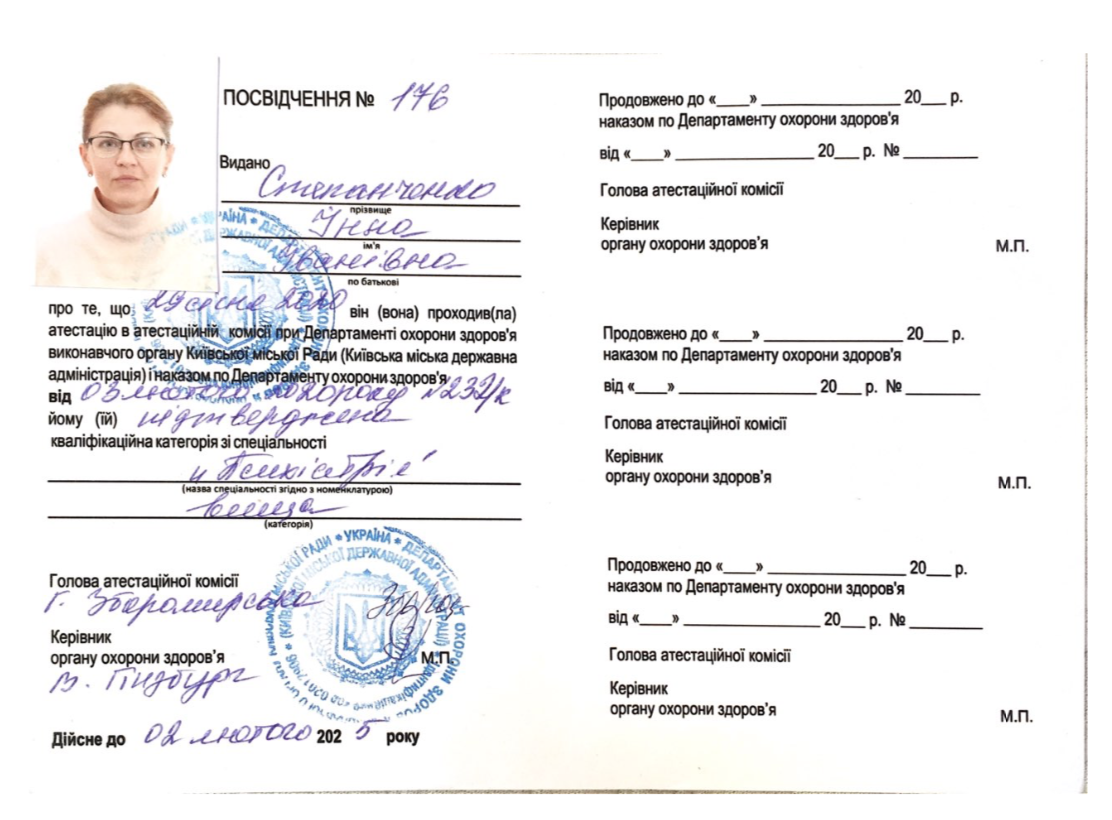 ПОСВІДЧЕННЯ № 176
Видано
Степанченко
прізвище
Інна
ім'я
Іванівна
по батькові
про те, що 29 січня 2020 він (вона) проходив(ла)
атестацію в атестаційній комісії при Департаменті охорони здоров'я
виконавчого органу Київської міської Ради (Київська міська державна
адміністрація) і наказом по Департаменту охорони здоров'я
від 03 лютого 2020 року №232/к
йому (їй) підтверджена
кваліфікаційна категорія зі спеціальності
„Психіатрія"
(назва спеціальності згідно з номенклатурою)
вища
(категорія)
Голова атестаційної комісії
Г. Збаромирська
Керівник
органу охорони здоров'я М.П.
В. Гінзбург
Дійсне до 02 лютого 2025 року
Продовжено до «____» ____________________ 20___ р.
наказом по Департаменту охорони здоров'я
від «____» ____________________ 20___ р. № __________
Голова атестаційної комісії
Керівник
органу охорони здоров'я М.П.
Продовжено до «____» ____________________ 20___ р.
наказом по Департаменту охорони здоров'я
від «____» ____________________ 20___ р. № __________
Голова атестаційної комісії
Керівник
органу охорони здоров'я М.П.
Продовжено до «____» ____________________ 20___ р.
наказом по Департаменту охорони здоров'я
від «____» ____________________ 20___ р. № __________
Голова атестаційної комісії
Керівник
органу охорони здоров'я М.П.